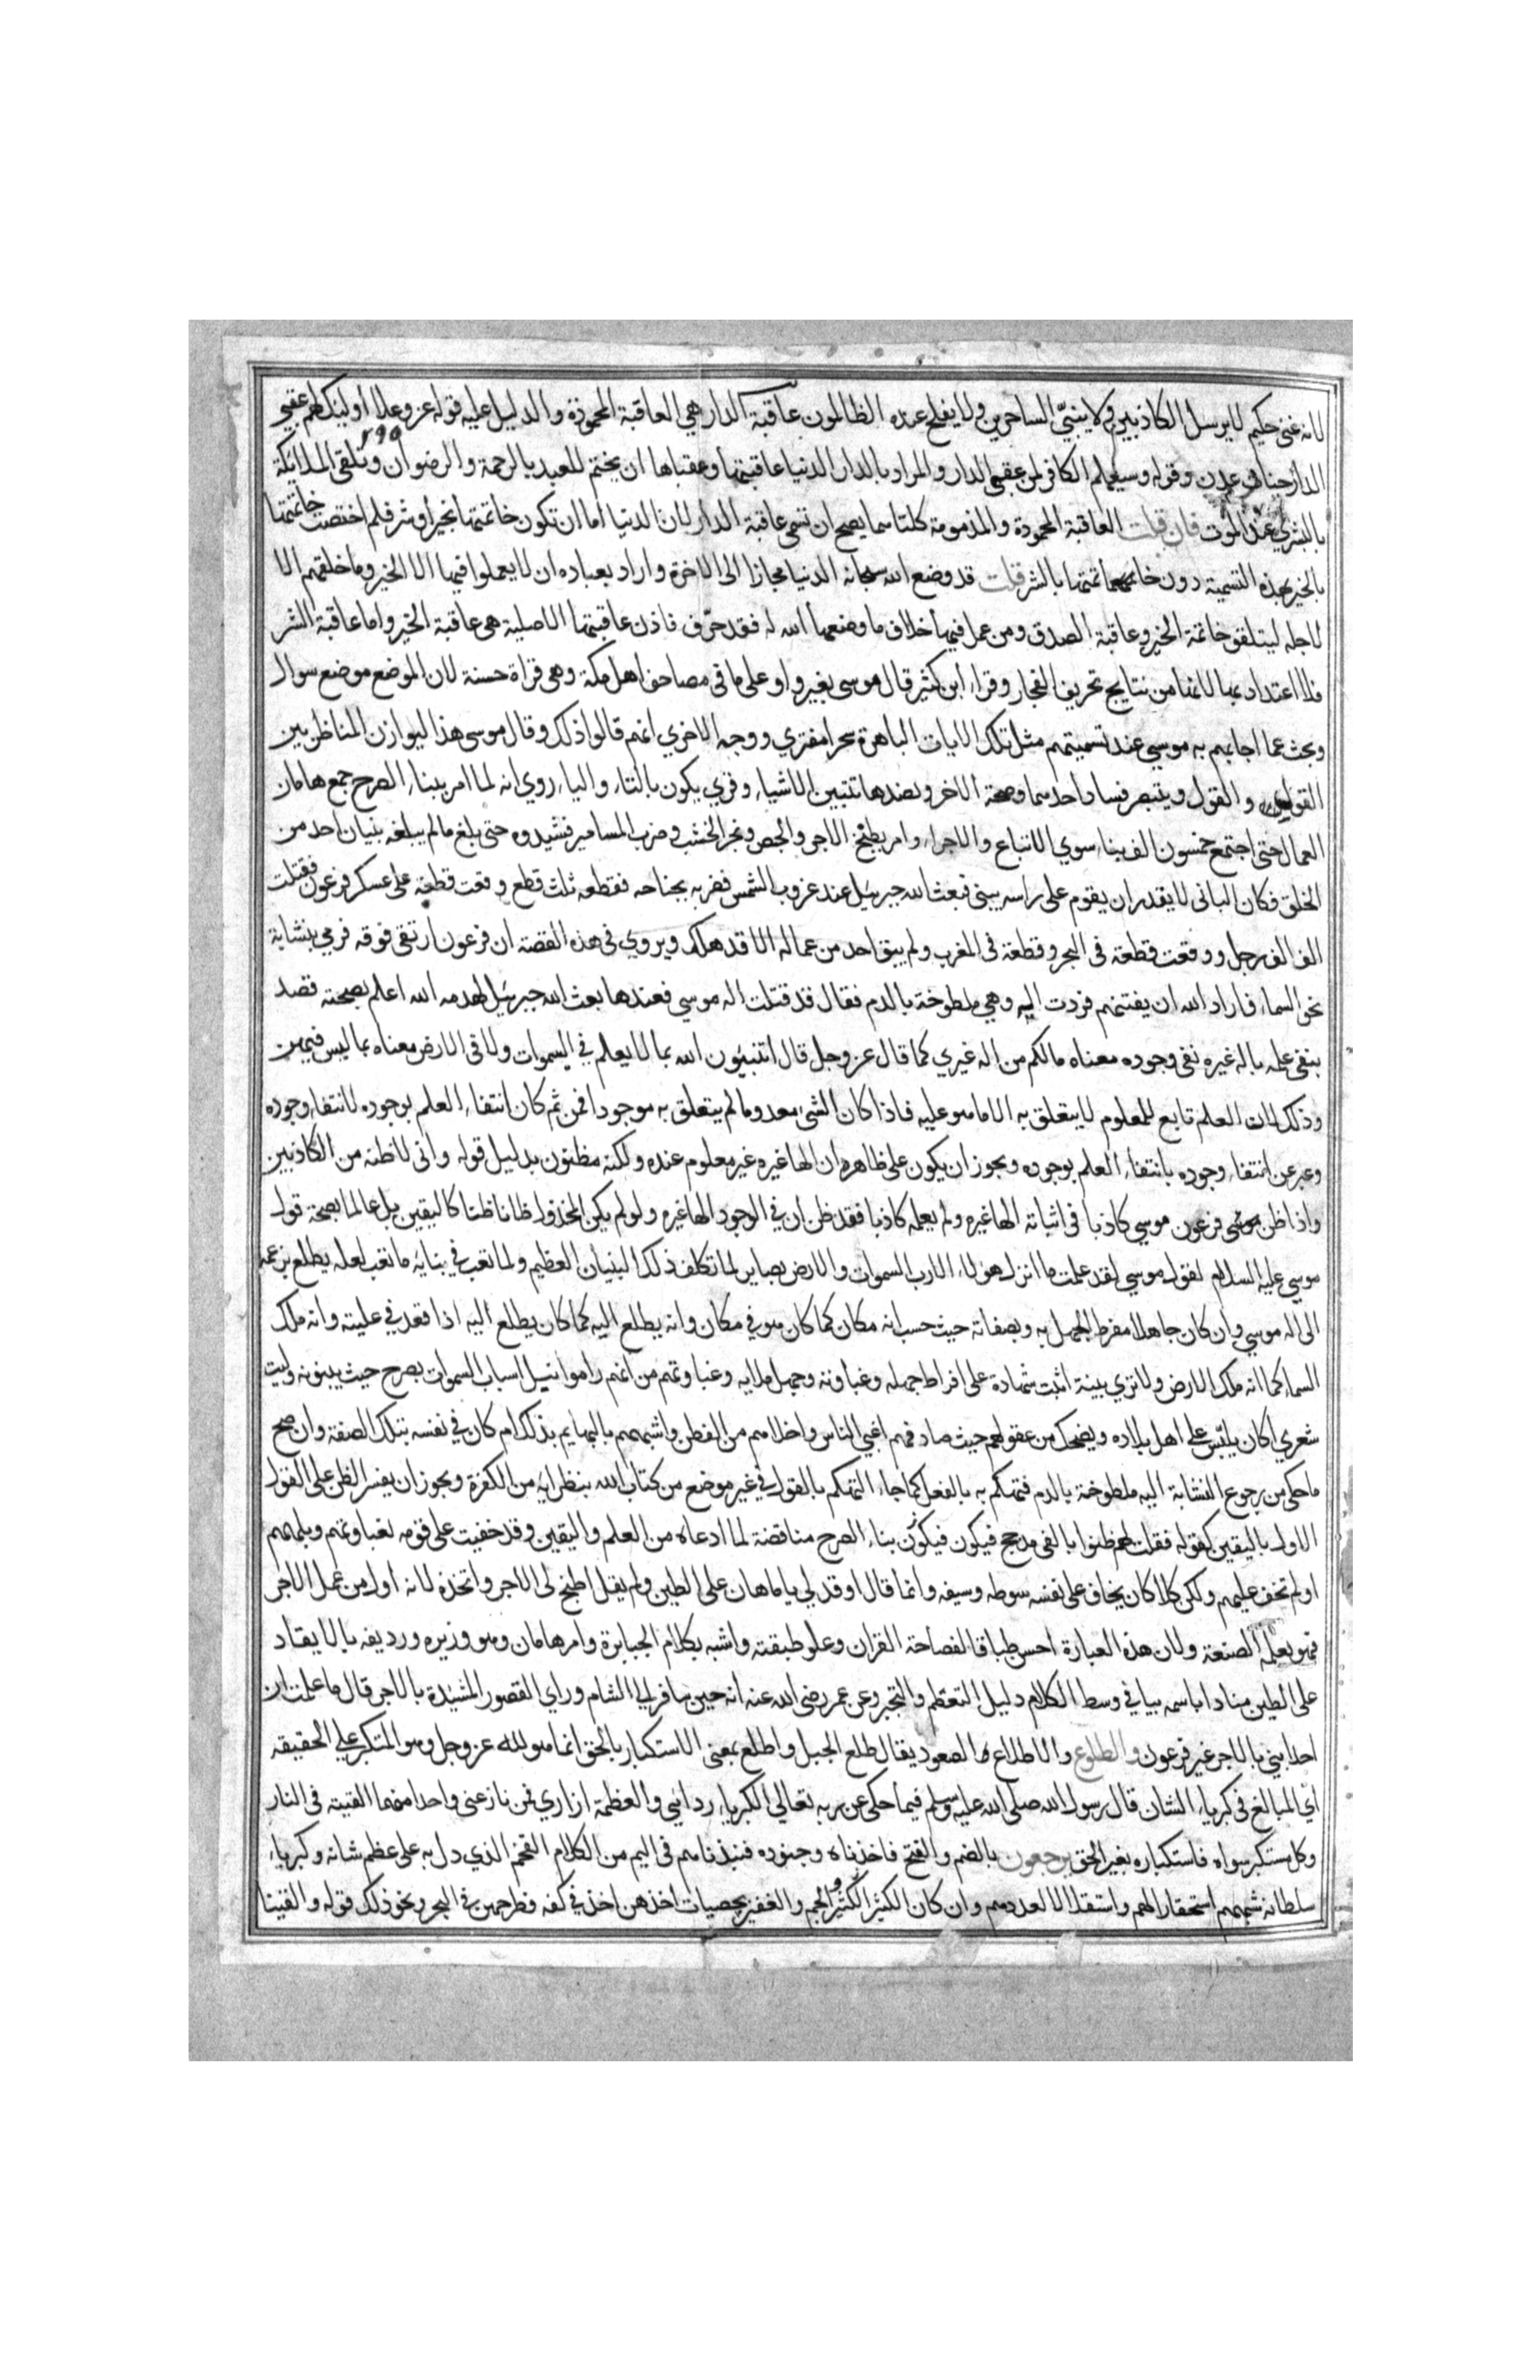 لانه غني حكيم لا يرسل الكاذبين ولا ينبّي الساحرين ولا يفلح عنده الظالمون عاقبة الدار هي العاقبة المحمودة والدليل عليه قوله عز وعلا اولئك لهم عقبي
٢٩٥
الدار جنات عدن وقوله وسيعلم الكافر لمن عقبي الدار والمراد بالدار الدنيا عاقبتها وعقباها ان يختم للعبد بالرحمة والرضوان وتلقي الملائكة
بالبشري عند الموت فان قلت العاقبة المحمودة والمذمومة كلتاهما يصح ان تسمي عاقبة الدار لان الدنيا اما ان تكون خاتمتها بخير او شر فلم اختصت خاتمتها
بالخير بهذه التسمية دون خاتمتها بالشر قلت قد وضع الله سبحانه الدنيا مجازا الي الاخرة واراد بعباده ان لا يعملوا فيها الا الخير وما خلقهم الا
لاجله ليتلقوا خاتمة الخير وعاقبة الصدق ومن عمل فيها خلاف ما وضعها الله له فقد حرّف فاذن عاقبتها الاصلية هي عاقبة الخير واما عاقبة الشر
فلا اعتداد بها لانها من نتايج تحريف الفجار وقراء ابن كثير قال موسي بغير واو علي ما في مصاحف اهل مكة وهي قراة حسنة لان الموضع موضع سوال
وبحث عما اجابهم به موسي عند تسميتهم مثل تلك الايات الباهرة سحرا مفتري ووجه الاخري انهم قالوا ذلك وقال موسي هذا ليوازن المناظر بين
القول والقول ويتبصر فساد احدهما وصحة الاخر وبضدها تتبين الاشياء وقري يكون بالتاء والياء روي انه لما امر ببناء الصرح جمع هامان
العمال حتي اجتمع خمسون الف بناء سوي الاتباع والاجراء وامر بطبخ الاجر والجص ونجر الخشب وضرب المسامير فشيدوه حتي بلغ ما لم يبلغه بنيان احد من
الخلق فكان الباني لا يقدر ان يقوم علي راسه يبني فبعث الله جبرئيل عند غروب الشمس فضربه بجناحه فقطعه ثلث قطع وقعت قطعة علي عسكر فرعون فقتلت
الف الف رجل ووقعت قطعة في البحر وقطعة في المغرب ولم يبق احد من عماله الا قد هلك ويروي في هذه القصة ان فرعون ارتقي فوقه فرمي بنشابة
نحو السماء فاراد الله ان يفتنهم فردت اليه وهي ملطوخة بالدم فقال قد قتلت اله موسي فعندها بعث الله جبرئيل لهدمه الله اعلم بصحته قصد
بنفي علمه باله غيره نفي وجوده معناه ما لكم من اله غيري كما قال عز وجل قل اتنبئون الله بما لا يعلم في السموات ولا في الارض معناه بما ليس فيهن
وذلك لان العلم تابع للمعلوم لا يتعلق به الا ما هو عليه فاذا كان الشي معدوما لم يتعلق به موجودا فمن ثم كان انتفاء العلم بوجوده لانتفاء وجوده
وعبر عن انتفاء وجوده بانتفاء العلم بوجوده ويجوز ان يكون علي ظاهره ان الها غيره غير معلوم عنده ولكنه مظنون بدليل قوله واني لاظنه من الكاذبين
واذا ظن فرعون موسي كاذبا في اثباته الها غيره ولم يعلمه كاذبا فقد ظن ان في الوجود الها غيره ولو لم يكن المخذول ظانا ظنا كاليقين بل عالما بصحة قول
موسي عليه السلام لقول موسي لقد علمت ما انزل هولاء الا رب السموات والارض بصاير لما تكلف ذلك البنيان العظيم ولما تعب في بنايه ما تعب لعله يطلع بزعمه
الي اله موسي وان كان جاهلا مفرط الجهل به وبصفاته حيث حسب انه مكان كما كان هو في مكان وانه يطلع اليه كما كان يطلع اليه اذا قعد في عليته وانه ملك
السماء كما انه ملك الارض ولا تري بينة اثبت شهادة علي افراط جهله وغباوته وجهل ملايه وغباوتهم من انهم راموا نيل اسباب السموات بصرح حيث يبنونه وليت
شعري اكان يلبّس علي اهل بلاده ويضحك من عقولهم حيث صادفهم اغبي الناس واخلاهم من الفطن واشبههم بالبهايم بذلك ام كان في نفسه بتلك الصفة وان صح
ما حكي من رجوع النشابة اليه ملطوخة بالدم فتهكم به بالفعل كما جاء التهكم بالقول في غير موضع من كتاب الله بنظرايه من الكفرة ويجوز ان يفسر الظن علي القول
الاول باليقين كقوله فقلت لهم ظنوا بالفي مدجج فيكون فيكون بناء الصرح مناقضة لما ادعاه من العلم واليقين وقد خفيت علي قومه لغباوتهم وبلههم
او لم تخف عليهم ولكن كلا كان يخاف علي نفسه سوطه وسيفه وانما قال اوقد لي ياهامان علي الطين ولم يقل اطبخ لي الاجر واتخذه لانه اول من عمل الاجر
فهو يعلمه الصنعة ولان هذه العبارة احسن طباقا لفصاحة القران وعلو طبقته واشبه بكلام الجبابرة وامر هامان وهو وزيره ورديفه بالايقاد
علي الطين منادا باسمه بيا في وسط الكلام دليل التعظم والتجبر وعن عمر رضي الله عنه انه حين سافر الي الشام وراي القصور المشيدة بالاجر قال ما علمت ان
احدا بني بالاجر غير فرعون والطلوع والاطلاع الصعود يقال طلع الجبل واطلع بمعني الاستكبار بالحق انما هو لله عز وجل وهو المتكبر علي الحقيقه
اي المبالغ في كبرياء الشان قال رسول الله صلي الله عليه وسلم فيما حكي عن ربه تعالي الكبرياء ردائي والعظمة ازاري فمن نازعني واحدا منهما القيته في النار
وكل مستكبر سواه فاستكباره بغير الحق يرجعون بالضم والفتح فاخذناه وجنوده فنبذناهم في اليم من الكلام الفخم الذي دل به علي عظم شانه وكبرياء
سلطانه شبههم استحقارا لهم واستقلالا لعددهم وان كان الكثير الكثير والجم والغفير بحصيات اخذهن اخذ في كفه فطرحهن في البحر ونحو ذلك قوله والقينا